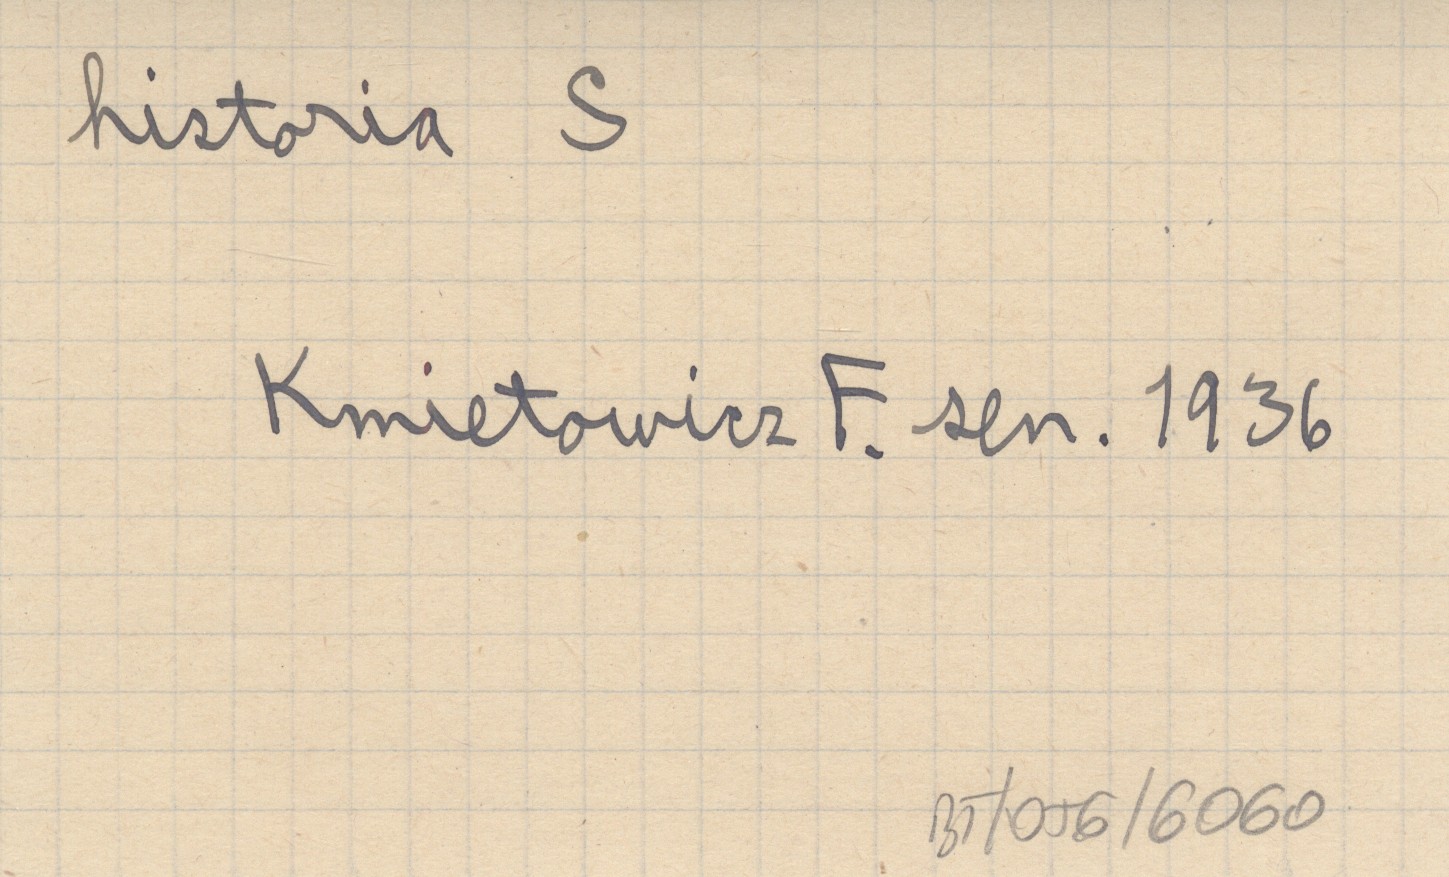 historia S
Kmietowicz F. sen. 1936
BT/056/6060